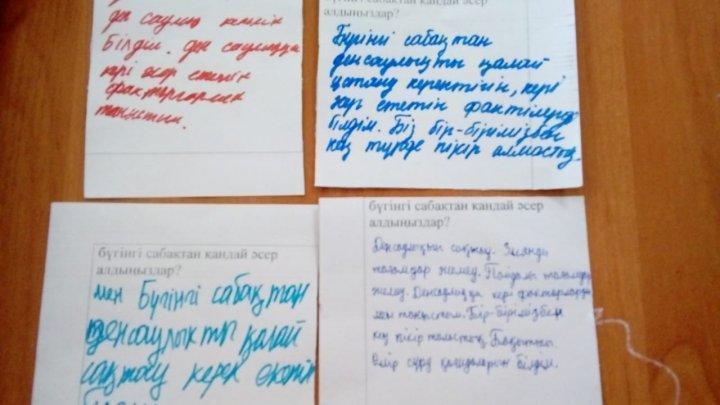 ден саулық
білдім. ден саулыққа
кері әсер ететін
факторлармен
таныстым.
бүгінгі сабақтан қандай әсер
алдыңыздар?
Бүгінгі сабақтан
денсаулықты қалай
ұстану керектігін, кері
әсер ететін фактілерді
білдім. Біз бір-бірімізбен
кең түрде пікір алмастық.
бүгінгі сабақтан қандай әсер
алдыңыздар?
мен бүгінгі сабақтан
денсаулықты қалай
сақтау керек екенін
бүгінгі сабақтан қандай әсер
алдыңыздар?
Денсаулықты сақтау. Зиянды
тағамдар жемеу. Пайдалы тағамдар
жеу. Денсаулыққа кері факторлар
мен таныстым. Бір-бірімізбен
кең пікір таластық.
Өмір сүру қағидаларын білдім.